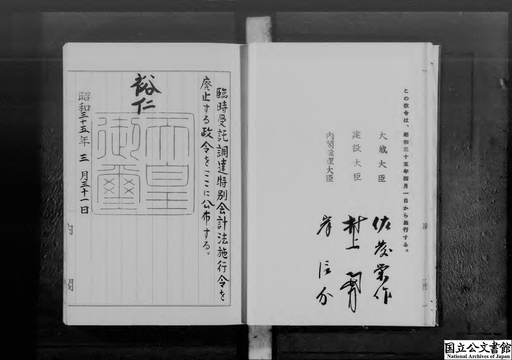 この政令は、昭和三十五年四月一日から施行する。
大蔵大臣
佐藤栄作
建設大臣
村上勇
内閣総理大臣
岸信介
臨時受託調達特別会計法施行令を
廃止する政令をここに公布する。
裕仁
天皇
御璽
昭和三十五年三月三十一日
内閣
国立公文書館
National Archives of Japan